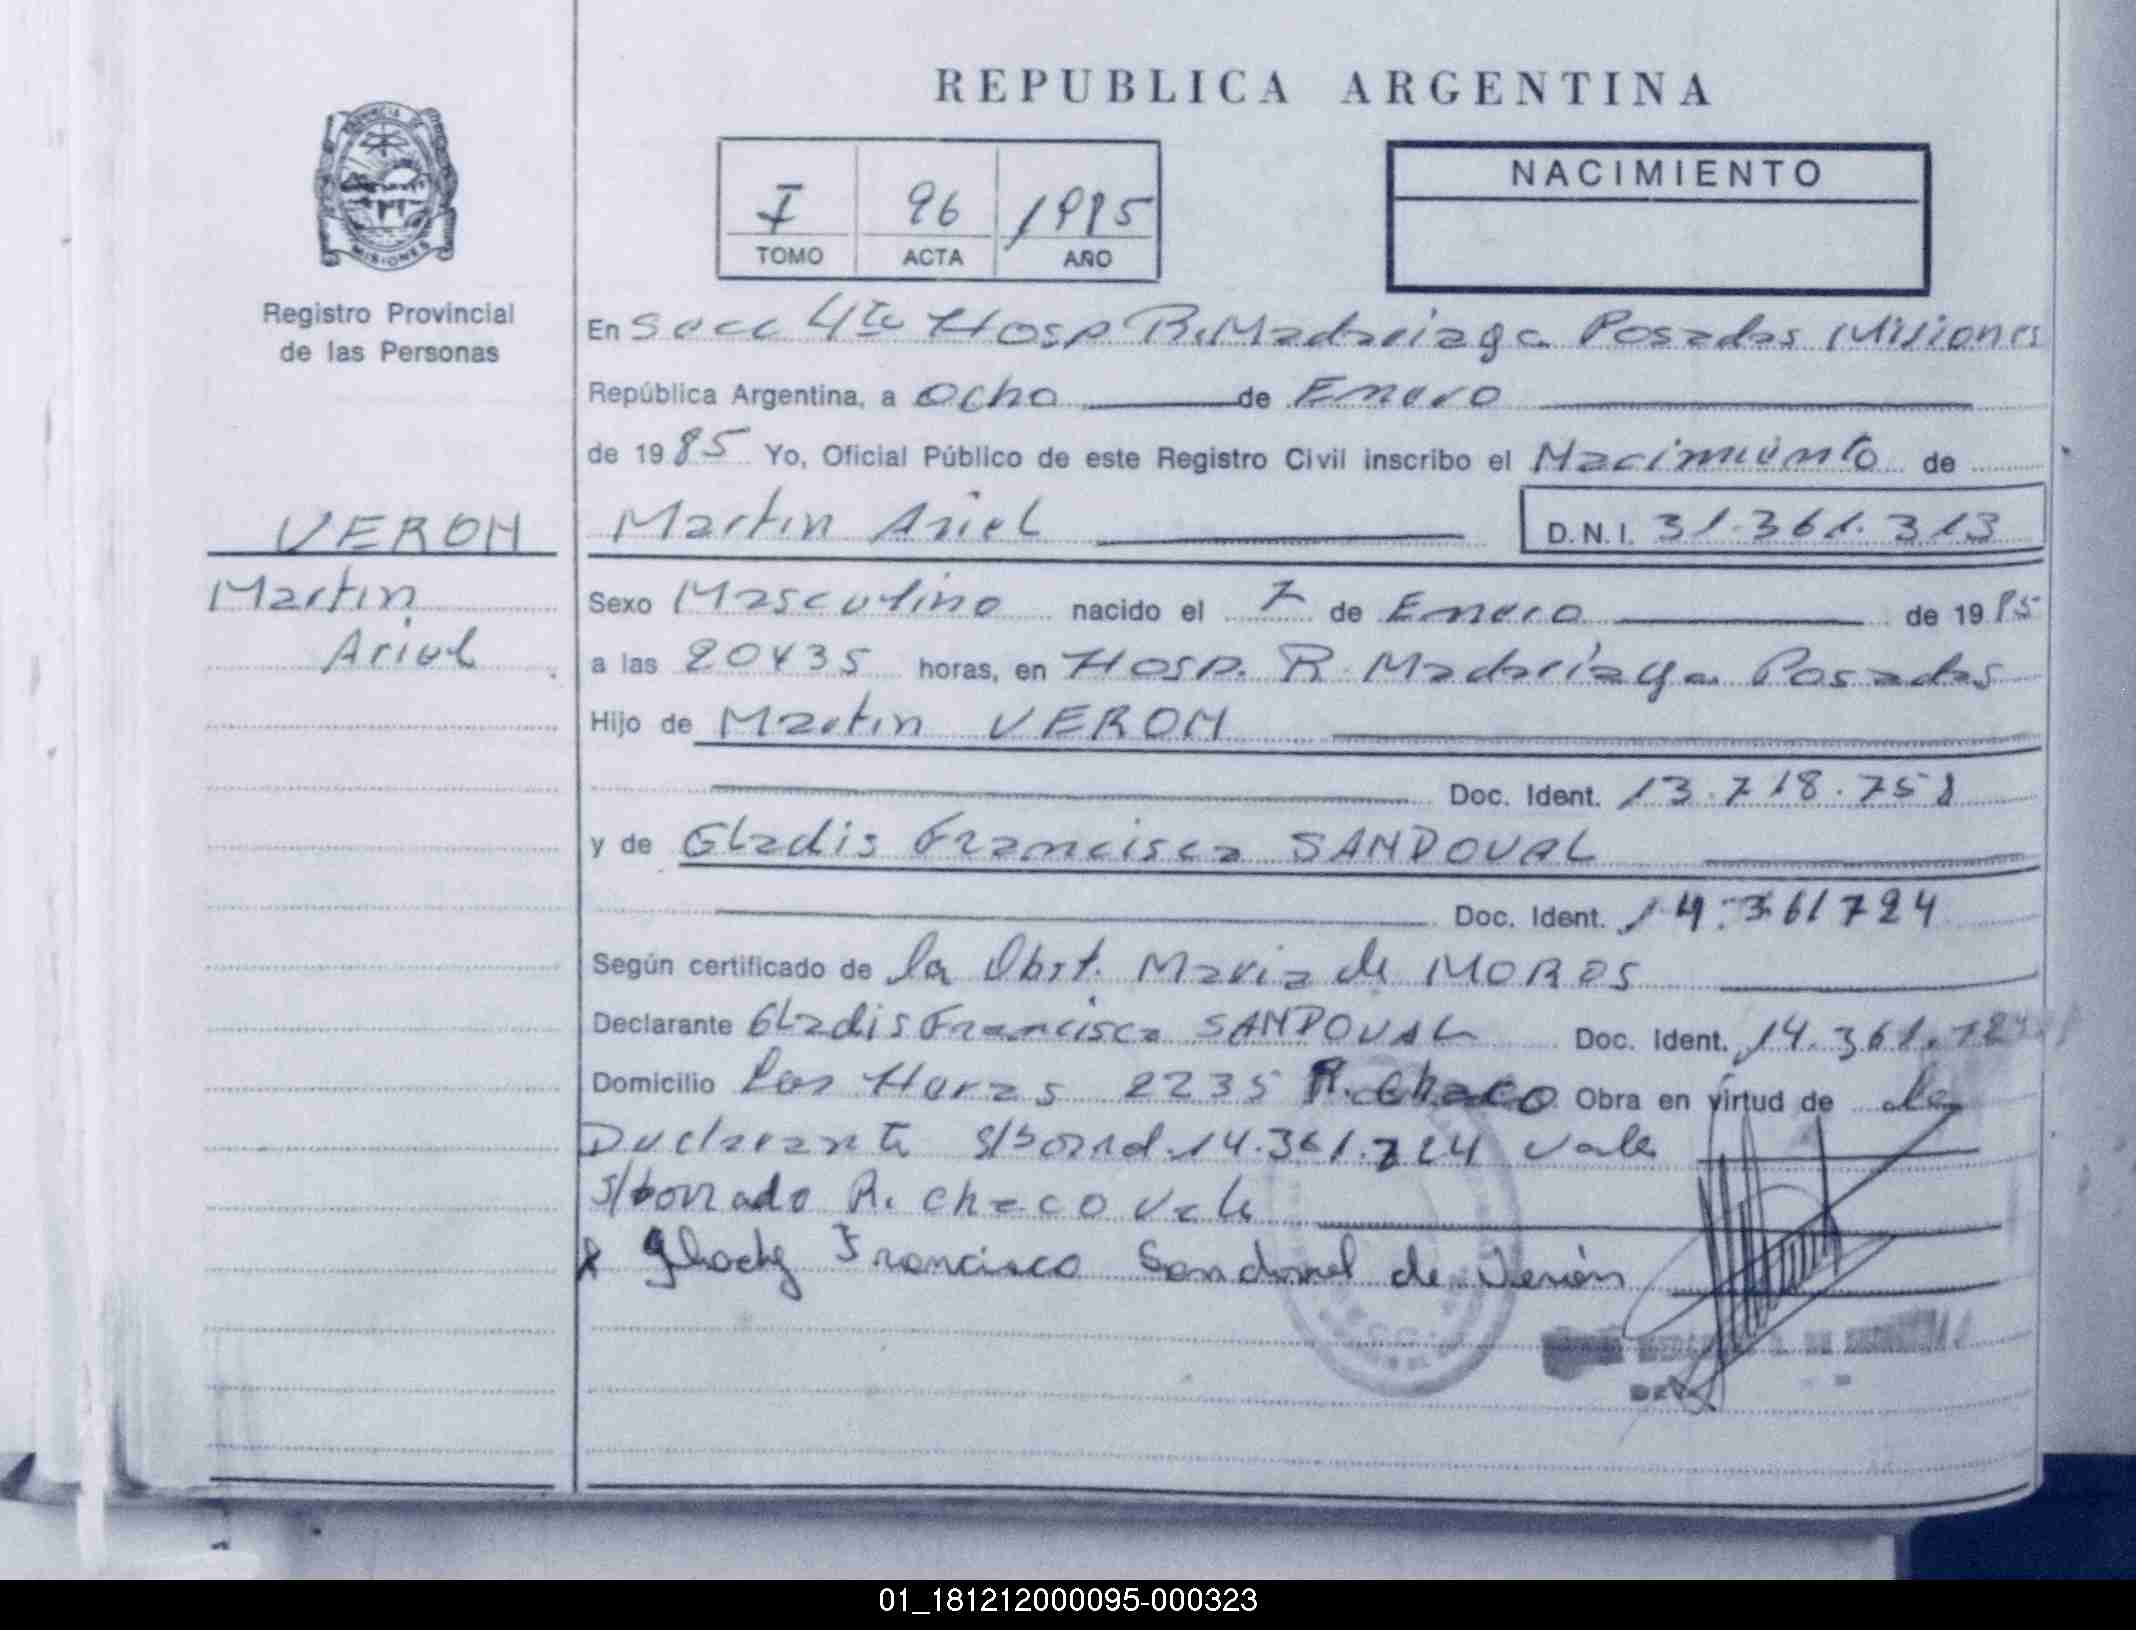 REPUBLICA ARGENTINA
PROVINCIA DE
MISIONES
Registro Provincial
de las Personas
I 96 1985
TOMO ACTA AÑO
NACIMIENTO
En Secc 4ta Hosp R. Madariaga Posadas Misiones
República Argentina, a Ocho de Enero
de 1985 Yo, Oficial Público de este Registro Civil inscribo el Nacimiento de
VERON
Martin Ariel
Martin Ariel D.N.I. 31.361.313
Sexo Masculino nacido el 7 de Enero de 1985
a las 20 y 35 horas, en Hosp. R. Madariaga Posadas
Hijo de Martin VERON
Doc. Ident. 13.718.758
y de Gladis Francisca SANDOVAL
Doc. Ident. 14.361724
Según certificado de la Obst. Maria de MOROS
Declarante Gladis Francisca SANDOVAL Doc. Ident. 14.361.724
Domicilio Las Heras 2235 R. Chaco Obra en virtud de la
Declarante s/borrad. 14.361.724 vale
s/borrado R. Chaco vale
x Glady Francisca Sandoval de Verón
01_181212000095-000323